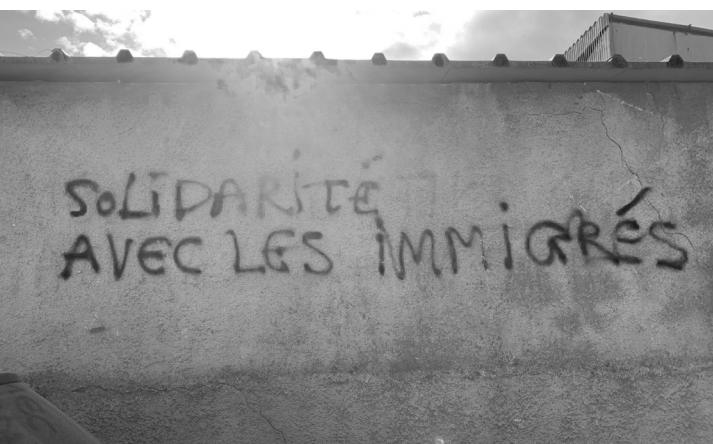 SOLiDARiTÉ
AVEC LES iMMiGRÉS